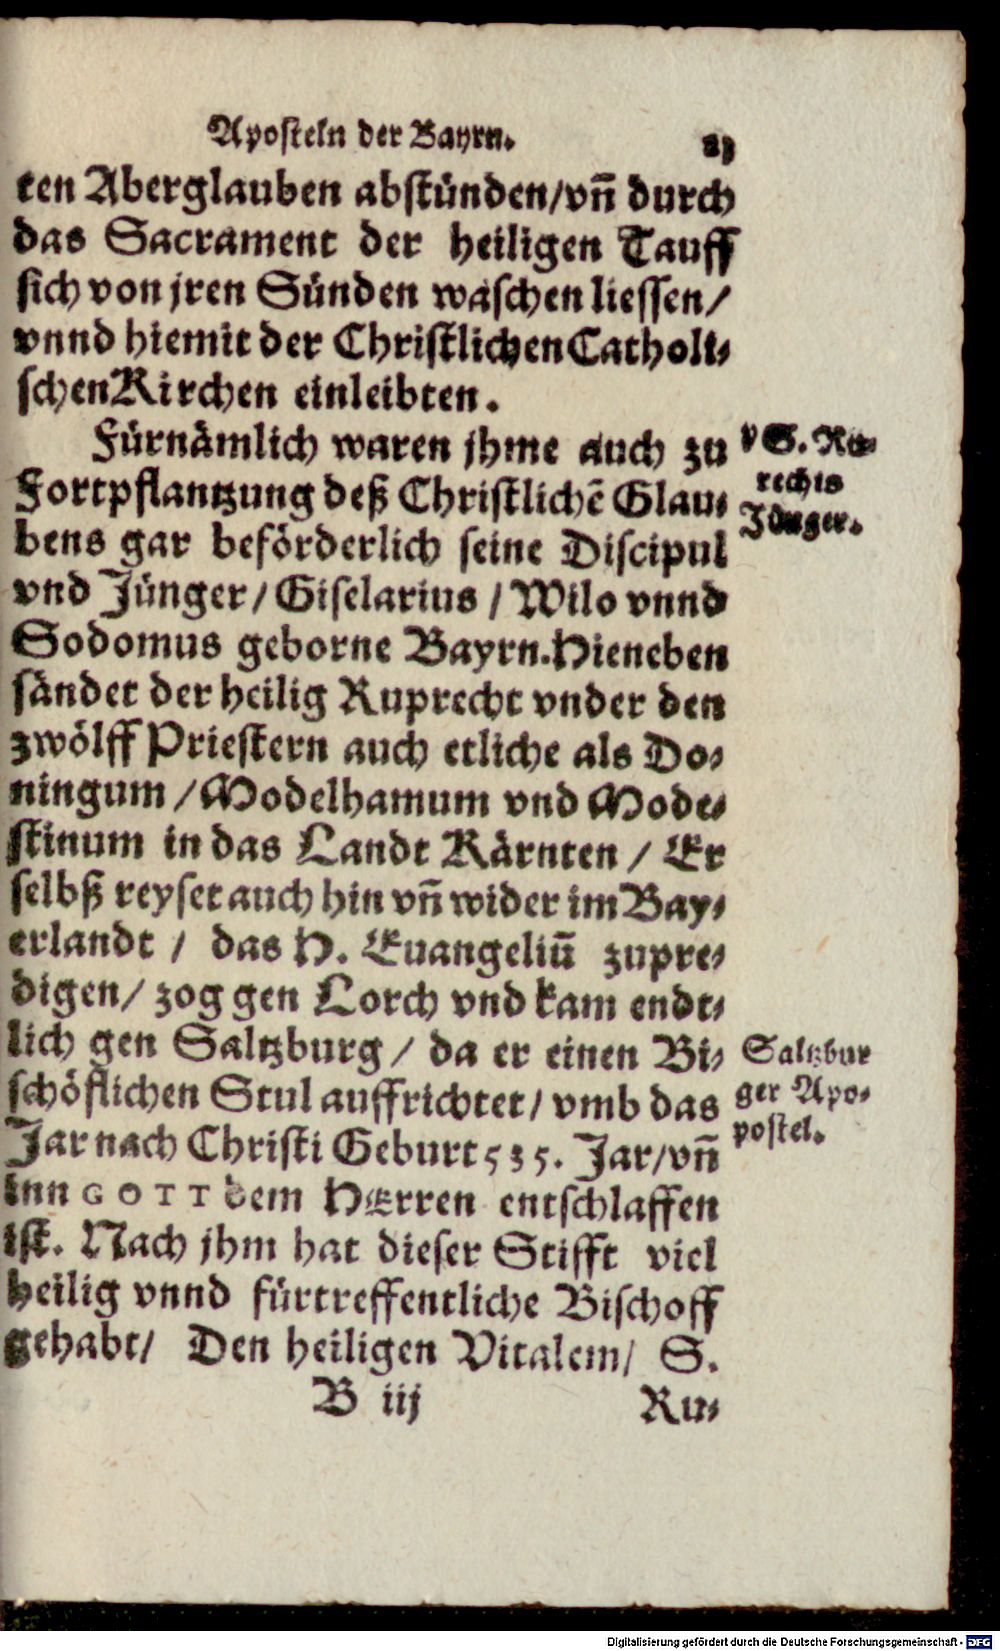 Aposteln der Bayrn.
ten Aberglauben abstünden/vn̄ durch
das Sacrament der heiligen Tauff
sich von jren Sünden waschen liessen/
vnnd hiemit der Christlichen Catholi-
schen Kirchen einleibten.
Fürnämlich waren jhme auch zu
Fortpflantzung deß Christlichē Glau-
bens gar beförderlich seine Discipul
vnd Jünger/ Giselarius / Wilo vnnd
Sodomus geborne Bayrn. Hieneben
sändet der heilig Ruprecht vnder den
zwölff Priestern auch etliche als Do-
ningum / Modelhamum vnd Mode-
stinum in das Landt Kärnten / Er
selbß reyset auch hin vn̄ wider im Bay-
erlandt / das H. Euangeliū zupre-
digen/ zog gen Lorch vnd kam endt-
lich gen Saltzburg/ da er einen Bi-
schöflichen Stul auffrichtet/ vmb das
Jar nach Christi Geburt 535. Jar/vn̄
inn GOTT dem HErren entschlaffen
ist. Nach jhm hat dieser Stifft viel
heilig vnnd fürtreffentliche Bischoff
gehabt/ Den heiligen Vitalem/ S.
B iij
Ru-
S. Ru-
rechts
Jünger.
Saltzbur
ger Apo-
postel.
Digitalisierung gefördert durch die Deutsche Forschungsgemeinschaft - DFG